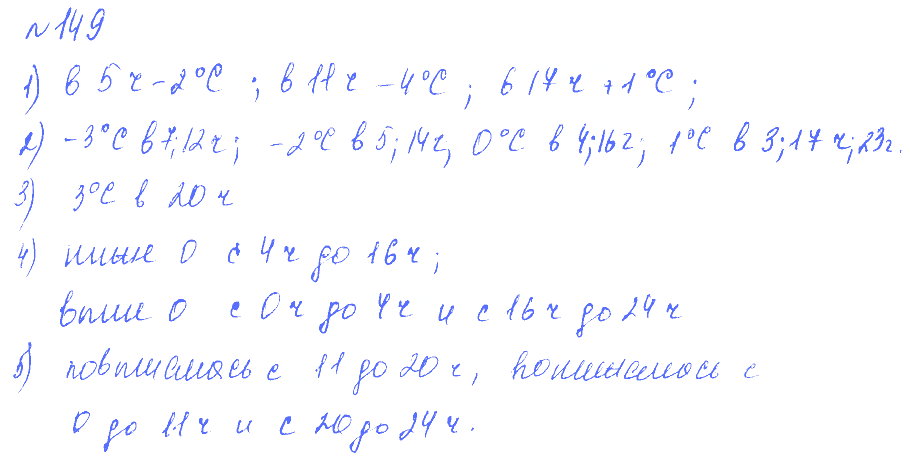 № 149
1) в 5 ч -2°С ; в 11 ч -4°С ; в 17 ч +1°С ;
2) -3°С в 7; 12 ч; -2°С в 5; 14 ч, 0°С в 4; 16 г; 1°С в 3; 17 ч; 23 г.
3) 3°С в 20 ч
4) ниже 0 с 4 ч до 16 ч;
выше 0 с 0 ч до 4 ч и с 16 ч до 24 ч
5) повышалась с 11 до 20 ч, понижалась с
0 до 11 ч и с 20 до 24 ч.